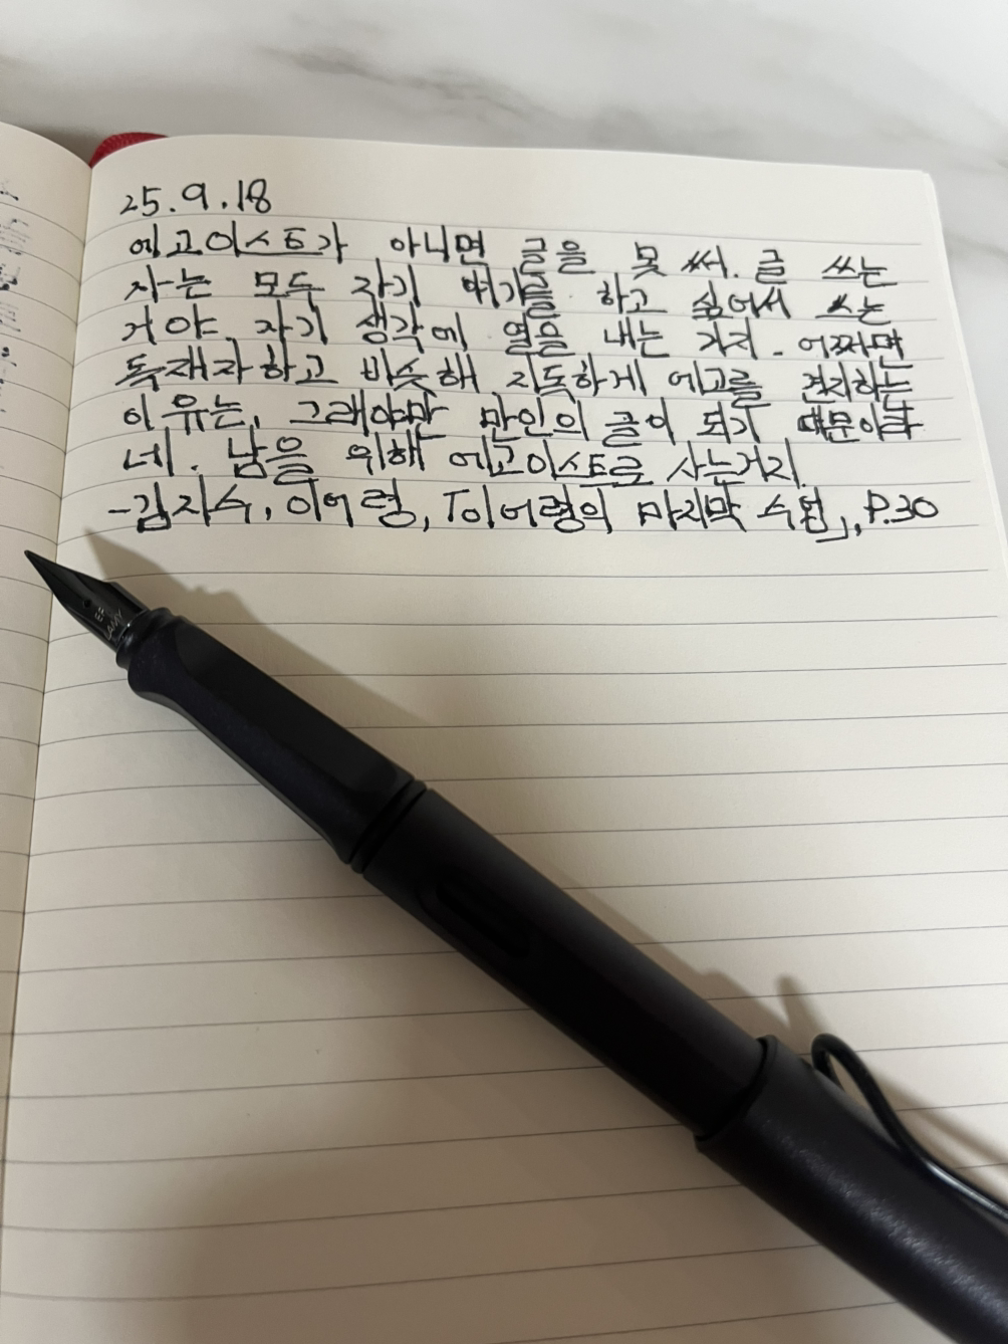 25.9.18
에고이스트가 아니면 글을 못 써. 글 쓰는
자는 모두 자기 얘기를 하고 싶어서 쓰는
거야. 자기 생각에 열을 내는 거지. 어쩌면
독재자하고 비슷해 지독하게 에고를 견지하는
이유는, 그래야만 만인의 글이 되기 때문이라
네. 남을 위해 에고이스트로 사는거지.
-김지수, 이어령, 『이어령의 마지막 수업』, P.30
EF
LAMY